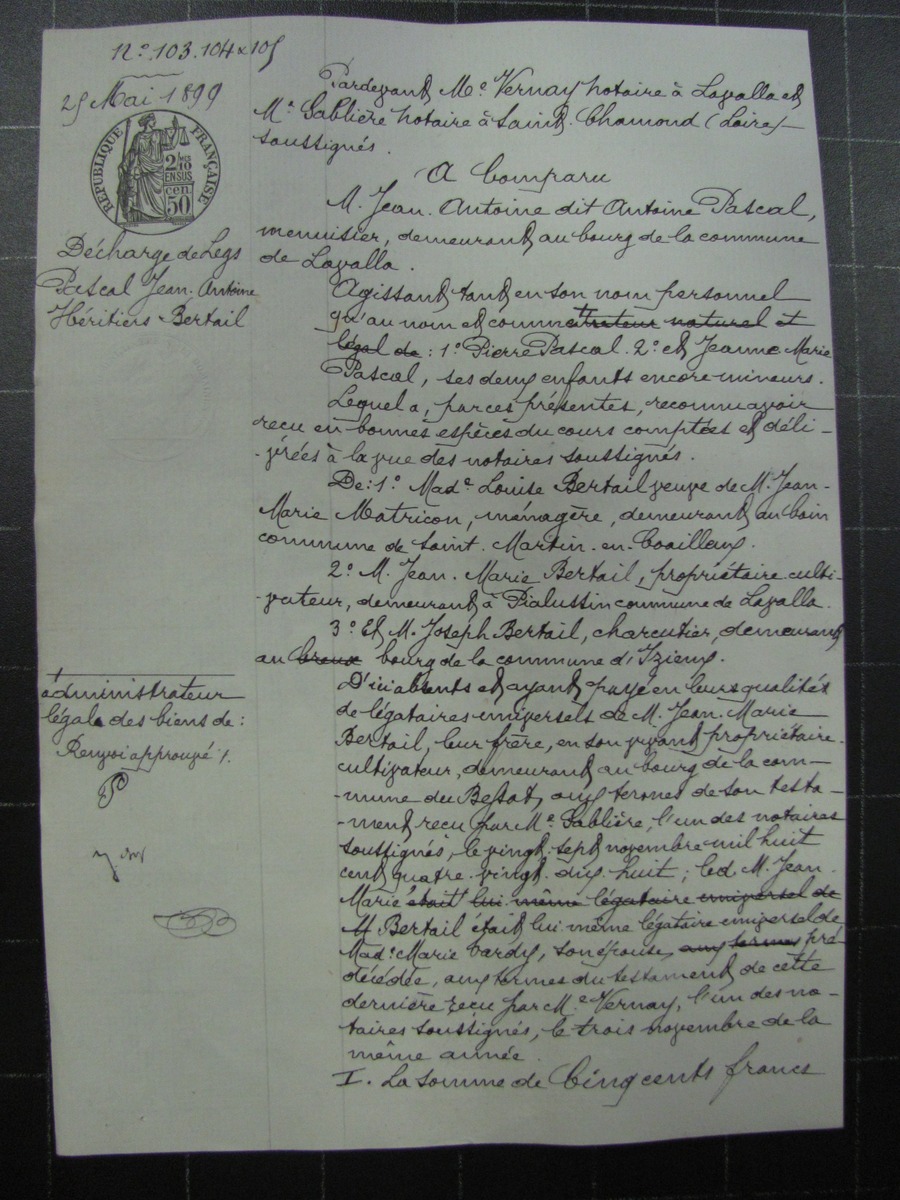 N° 103. 104 & 105
25 Mai 1899
RÉPUBLIQUE FRANÇAISE
2/10 MES
EN SUS
50 cen
Décharge de Legs
Pascal Jean-Antoine
Héritiers Bertail
Pardevant Me Vernay notaire à Lavalla et
Me Gablière notaire à Saint-Chamond (Loire)
soussignés.
A Comparu
M. Jean-Antoine dit Antoine Pascal,
menuisier, demeurant au bourg de la commune
de Lavalla.
Agissant tant en son nom personnel
qu'au nom et comme tuteur naturel et
légal de : 1° Pierre Pascal 2° et Jeanne-Marie
Pascal, ses deux enfants encore mineurs.
Lequel a, par ces présentes, reconnu avoir
reçu en bonnes espèces du cours comptées et déli-
-vrées à la vue des notaires soussignés.
De : 1° Made Louise Bertail veuve de M. Jean-
Marie Matricon, ménagère, demeurant au
commune de Saint-Martin-en-Coailleux.
2° M. Jean-Marie Bertail, propriétaire culti-
-vateur, demeurant à Pialussin commune de Lavalla.
3° Et M. Joseph Bertail, charcutier, demeurant
au bourg de la commune d'Izieux.
D'ici absents et ayant payé en leurs qualités
de légataires universels de M. Jean-Marie
Bertail, leur frère, en son vivant propriétaire-
cultivateur, demeurant au bourg de la com-
-mune du Bessat, aux termes de son testa-
-ment reçu par Me Gablière, l'un des notaires
soussignés, le vingt-sept novembre mil huit
cent quatre-vingt-dix-huit ; led. M. Jean-
Marie était lui même légataire universel de
M. Bertail était lui même légataire universel de
Made Marie Vardy, son épouse, aux termes pré-
décédée, aux termes du testament de cette
dernière reçu par Me Vernay, l'un des no-
-taires soussignés, le trois novembre de la
même année.
I. La somme de Cinq cents francs
administrateur
légal des biens de :
Renvoi approuvé 1.